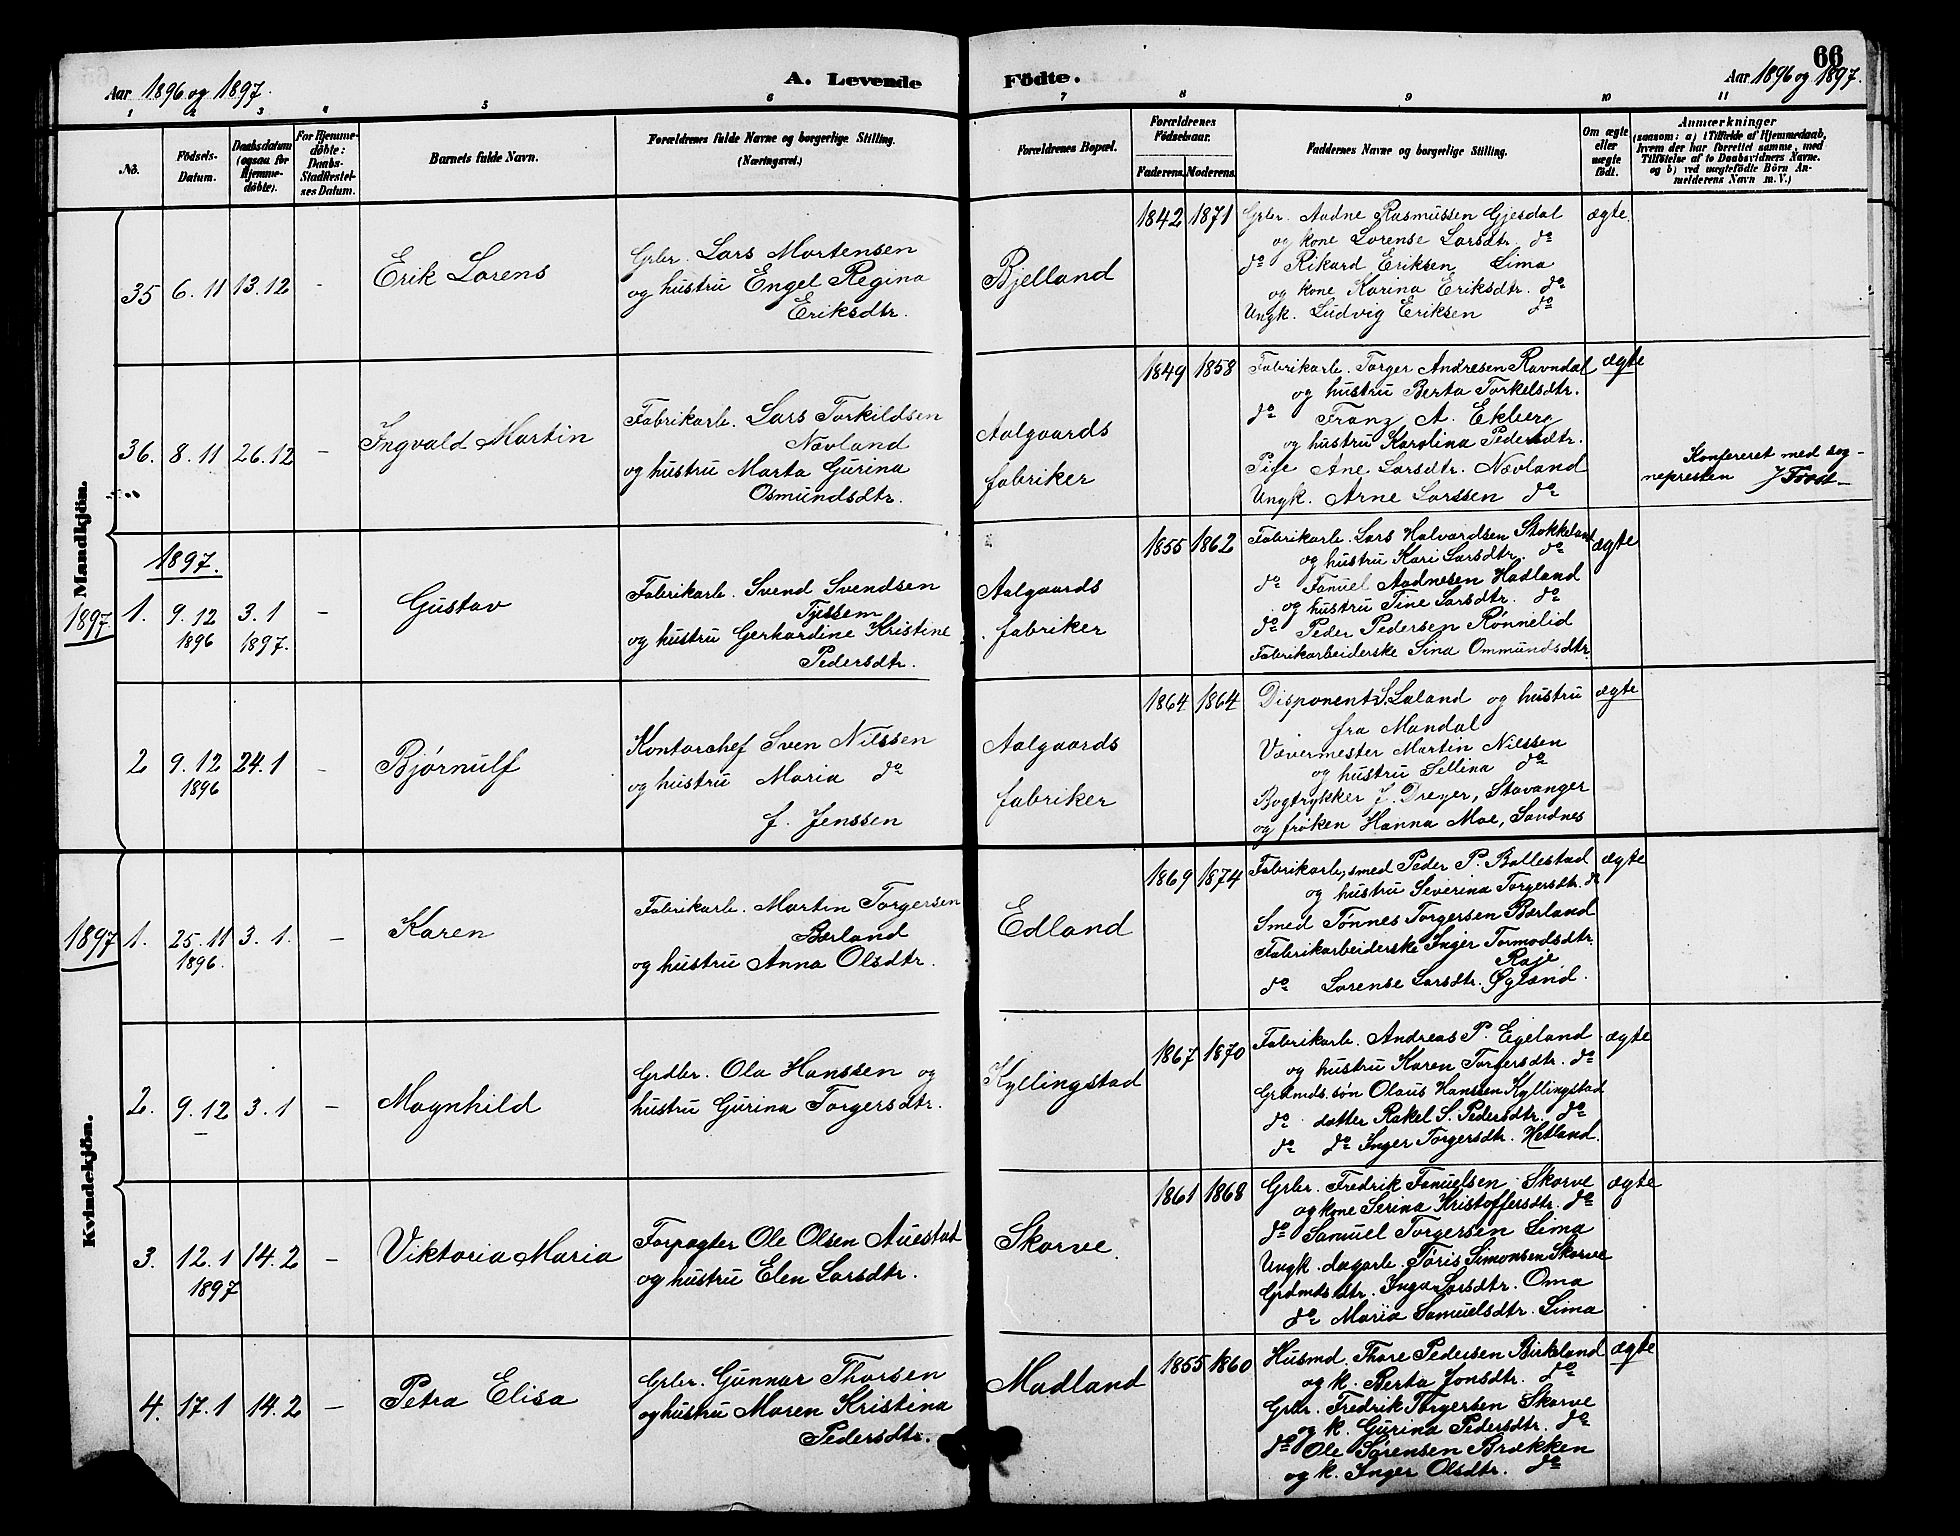 66
Aar 1896 og 1897.
A. Levende Födte.
Aar 1896 og 1897.
1 2 3 4 5 6 7 8 9 10 11
No.
Födsels-Datum.
Daabsdatum (ogsaa for Hjemme-döbte).
For Hjemme-döbte: Daabs-Stadfæstel-ses Datum.
Barnets fulde Navn.
Forældrenes fulde Navne og borgerlige Stilling.
(Næringsvei.)
Forældrenes Bopæl.
Forældrenes Födselsaar.
Faderens. Moderens.
Faddernes Navne og borgerlige Stilling.
Om ægte eller uægte födt.
Anmærkninger
(saasom: a) i Tilfælde af Hjemmedaab,
hvem der har forrettet samme, med
Tilföielse af to Daabsvidners Navne.
og b) ved uægtefödte Börn An-
melderens Navn m. V.)
Mandkjön.
35 6.11 13.12 - Erik Lorens
Grbr. Lars Mortensen
og hustru Engel Regina
Eriksdtr.
Bjelland
1842 1871
Grbr. Aadne Rasmussen Gjesdal
og kone Lorense Larsdtr. do
do Rikard Eriksen Lima
og kone Karina Eriksdtr. do
Ungk. Ludvig Eriksen do
ægte.
36. 8.11 26.12 - Ingvald Martin
Fabrikarb. Lars Torkildsen
Nævland
og hustru Marta Gurina
Osmundsdtr.
Aalgaards
fabriker
1849 1858
Fabrikarb. Torger Andresen Ravndal
og hustru Berta Torkelsdtr.
do Franz A. Ekberg
og hustru Karolina Pedersdtr.
Pige Ane Larsdtr. Nævland
Ungk. Arne Larssen do
ægte
Konfereret med sog-
nepresten
1897.
1897
1. 9.12 1896 3.1 1897. - Gustav
Fabrikarb. Svend Svendsen
Tjessem
og hustru Gerhardine Kristine
Pedersdtr.
Aalgaards
fabriker
1855 1862
Fabrikarb. Lars Halvardsen Stokkeland
og hustru Kari Larsdtr. do
do Fanuel Aadnesen Hadland
og hustru Tine Larsdtr. do
do Peder Pedersen Rønnelid
Fabrikarbeiderske Sina Ommundsdtr
ægte
2 9.12 1896 24.1 - Bjørnulf
Kontorchef Sven Nilssen
og hustru Maria do
f. Jenssen
Aalgaards
fabriker
1864 1864
Disponent S. Laland og hustru
fra Mandal
Vævermester Martin Nilssen
og hustru Sellina do
Bogtrykker J. Dreyer, Stavanger
og frøken Hanna Moe, Sandnes
ægte
Kvindekjön.
1897
1. 25.11 1896. 3.1. - Karen
Fabrikarb. Martin Torgersen
Bærland
og hustru Anna Olsdtr.
Edland
1869 1874
Fabrikarb, smed Peder P. Ballestad
og hustru Severina Torgersdtr. do
Smed Tønnes Torgersen Bærland
Fabrikarbeiderske Inger Tormodsdtr.
Raje
do Lorense Larsdtr. Øgland.
ægte
2. 9.12 3.1 - Magnhild
Grdbr. Ola Hanssen og
hustru Gurina Torgersdtr.
Kyllingstad
1867 1870
Fabrikarb. Andreas P. Egeland
og hustru Karen Torgersdtr. do
Grdmds.søn Olaus Hanssen Kyllingstad
do datter Rakel S. Pedersdtr. do
do do Inger Torgersdtr. Hetland.
ægte
3. 12.1 1897 14.2 - Viktoria Maria
Forpagter Ole Olsen Auestad
og hustru Elen Larsdtr.
Skorve.
1861 1868
Grbr. Fredrik Fanuelsen Skorve
og kone Serina Kristoffersdtr. do
do Samuel Torgersen Lima
Ungk. dagarb. Tøris Simonsen Skorve
Grdmdsdtr. Inga Larsdtr. Oma
do Maria Samuelsdtr. Lima
ægte
4. 17.1 14.2 - Petra Elisa
Grbr. Gunnar Thorsen
og hustru Maren Kristina
Pedersdtr.
Madland
1855 1860
Husmd. Thore Pedersen Birkeland
og k. Berta Jonsdtr. do
Grbr. Fredrik Torgersen Skorve
og k. Gurina Pedersdtr. do
do Ole Sørensen Brækken
og k. Inger Olsdtr. do
ægte